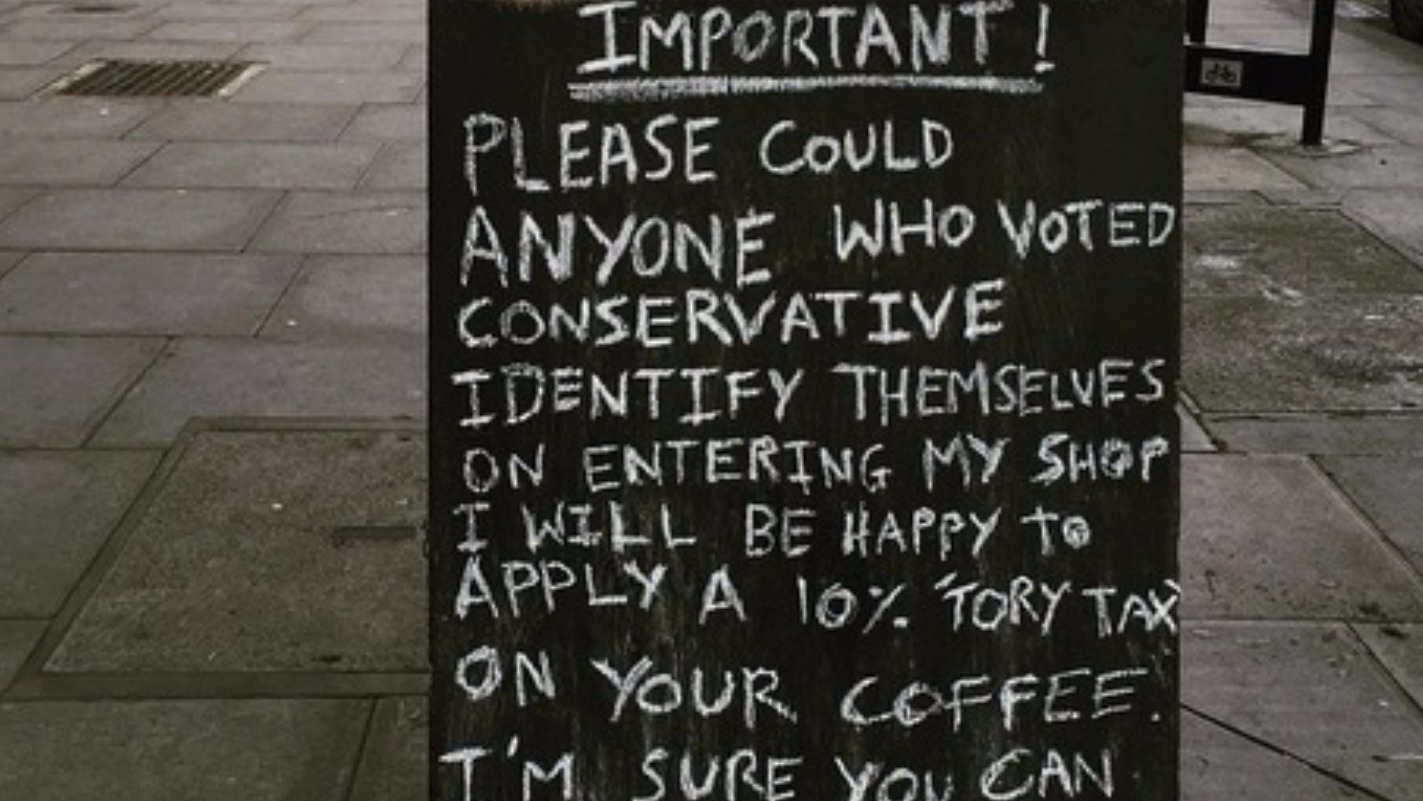 IMPORTANT!
PLEASE COULD
ANYONE WHO VOTED
CONSERVATIVE
IDENTIFY THEMSELVES
ON ENTERING MY SHOP
I WILL BE HAPPY TO
APPLY A 10% 'TORY TAX'
ON YOUR COFFEE.
I'M SURE YOU CAN